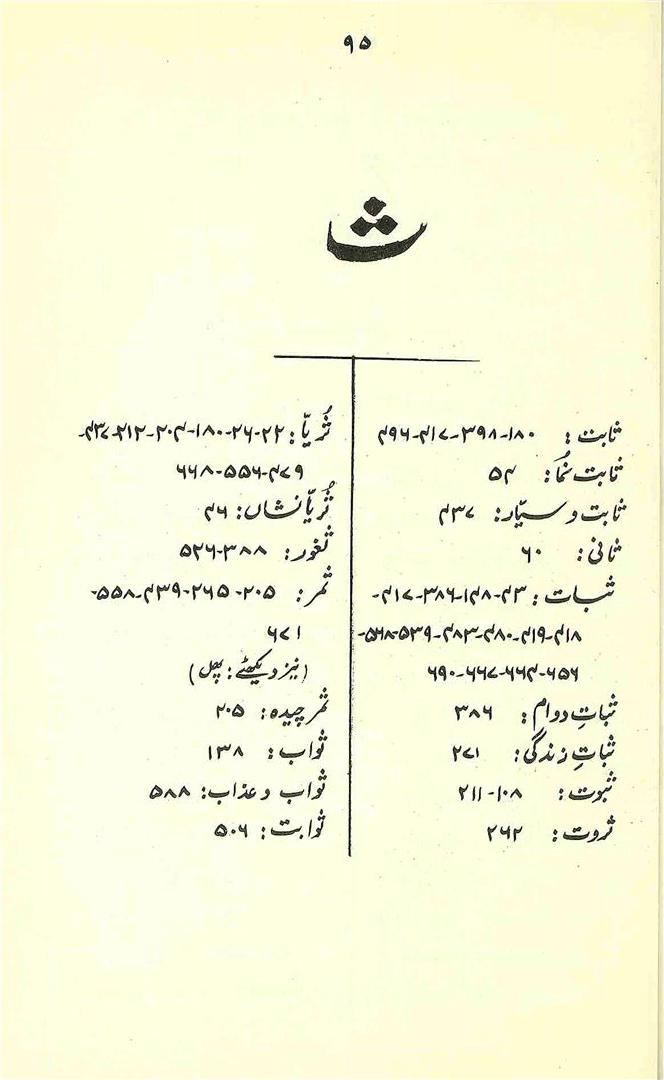 ۹۵
ث
ثابت : ۱۸۰-۳۹۸-۴۱۷-۴۹۶
ثابت نُما: ۵۴
ثابت و سیّار: ۴۳۷
ثانی: ۶۰
ثبات: ۴۳-۱۴۸-۳۸۶-۴۱۷-
۴۱۸-۴۱۹-۴۸۰-۴۸۳-۵۳۹-۵۶۸-
۶۵۶-۶۶۴-۶۶۷-۶۹۰
ثباتِ دوام: ۳۸۶
ثباتِ زندگی: ۲۷۱
ثبوت: ۱۰۸-۲۱۱
ثروت: ۲۶۲
ثُریّا: ۲۲-۲۶-۱۸۰-۲۰۴-۲۱۲-۴۳۷-
۴۷۹-۵۵۶-۶۶۸
ثُریّا نشاں: ۴۶
ثغور: ۳۸۸-۵۲۶
ثمر: ۲۰۵-۲۶۵-۴۳۹-۵۵۸-
۶۷۱
(نیز دیکھئے: پھل)
ثمر چیدہ: ۲۰۵
ثواب: ۱۳۸
ثواب و عذاب: ۵۸۸
ثوابت: ۵۰۶